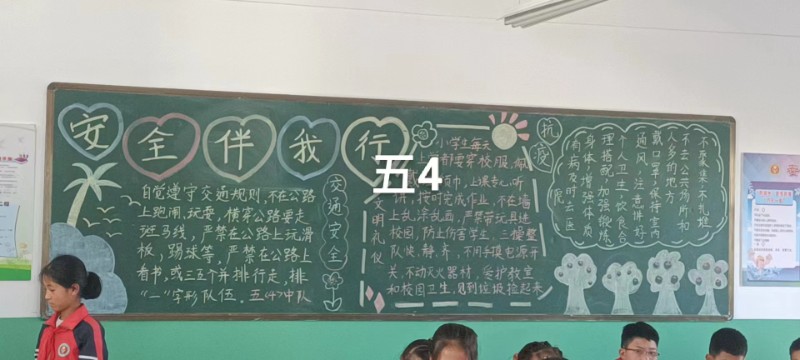 安全伴我行
五4
自觉遵守交通规则,不在公路
上跑闹,玩耍,横穿公路要走
班马线,严禁在公路上玩滑
板,踢球等,严禁在公路上
看书,或三五个并排行走,排
“一”字形队伍。五(4)中队
交通安全
文明礼仪
小学生每天
都要穿校服,佩
巾,上课专心听
讲,按时完成作业,不在墙
上乱涂乱画,严禁带玩具进
校园,防止伤害学生,上楼整
队快、静、齐,不用手摸电源开
关,不动灭火器材,爱护教室
和校园卫生,见到垃圾捡起来
抗疫
不聚集,不扎堆
不去公共场所和
人多的地方
戴口罩,保持室内
通风,注意讲好
个人卫生,饮食合
理搭配,加强锻炼
身体,增强体质
有病及时去医
院